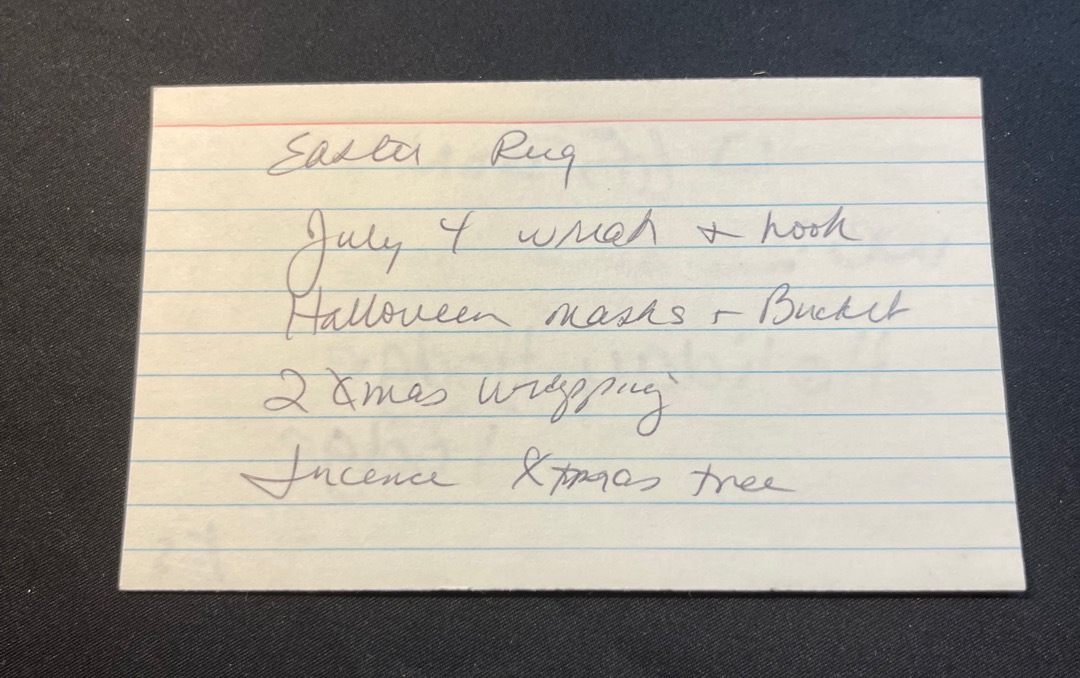 Easter Rug
July 4 wreah + hook
Halloween masks + Bucket
2 Xmas wrapping
Incence Xtmas tree